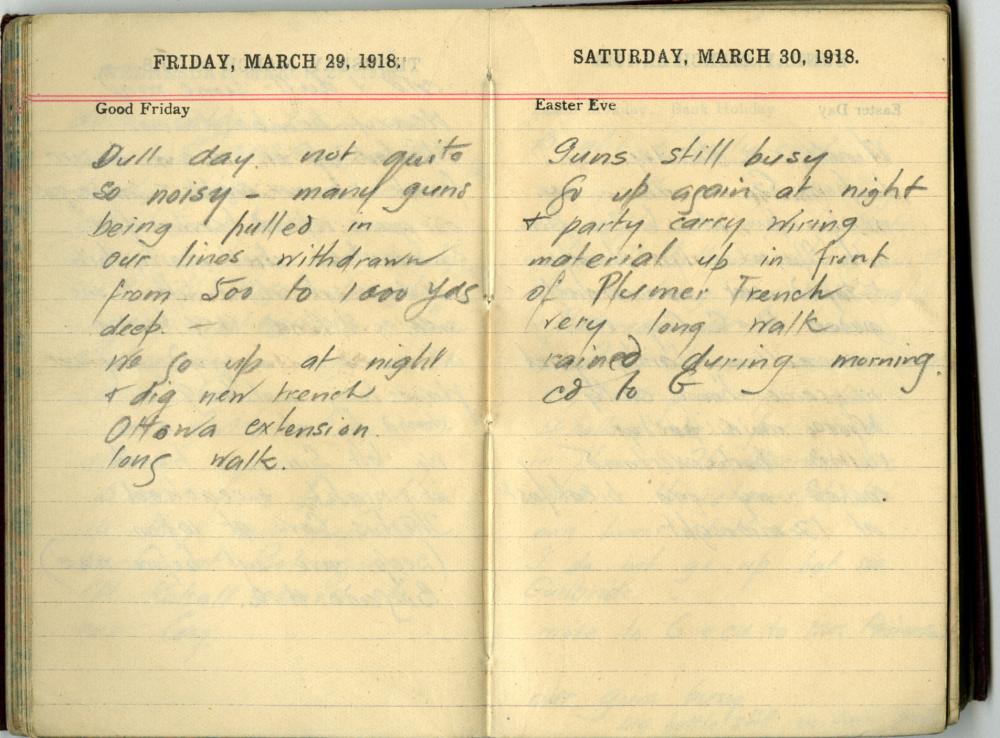 FRIDAY, MARCH 29, 1918.
Good Friday
Dull day. not quite
so noisy - many guns
being pulled in
our lines withdrawn
from 500 to 1000 yds
deep.
We go up at night
+ dig new trench
Ottowa extension.
long walk.
SATURDAY, MARCH 30, 1918.
Easter Eve
Guns still busy
Go up again at night
+ party carry wiring
material up in front
of Plumer Trench
very long walk
rained during morning.
cd to G